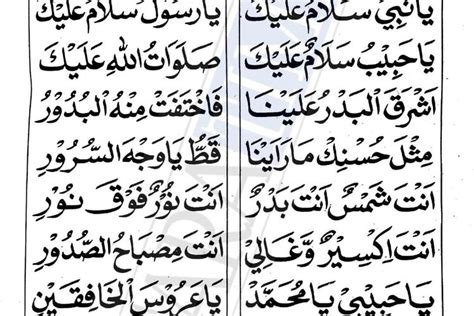 يَا نَبِيْ سَلَامٌ عَلَيْكَ يَا رَسُوْلْ سَلَامٌ عَلَيْكَ
يَا حَبِيْبُ سَلَامٌ عَلَيْكَ صَلَوَاتُ اللهِ عَلَيْكَ
اَشْرَقَ الْبَدْرُ عَلَيْنَا فَاخْتَفَتْ مِنْهُ الْبُدُوْرُ
مِثْلَ حُسْنِكَ مَا رَاَيْنَا قَطُّ يَا وَجْهَ السُّرُوْرِ
اَنْتَ شَمْسٌ اَنْتَ بَدْرٌ اَنْتَ نُوْرٌ فَوْقَ نُوْرٍ
اَنْتَ اِكْسِيْرٌ وَغَالِيْ اَنْتَ مِصْبَاحُ الصُّدُوْرِ
يَا حَبِيْبِيْ يَا مُحَمَّدْ يَا عَرُوْسَ الْخَافِقَيْنِ